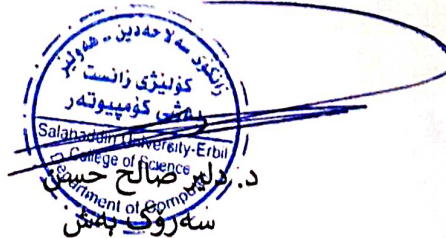 زانکۆی سەلاحەدین - هەولێر
کۆلێژی زانست
بەشی کۆمپیوتەر
Salahaddin University-Erbil
College of Science
Department of Comput
د. دلێر صالح حسن
سەرۆک بەش